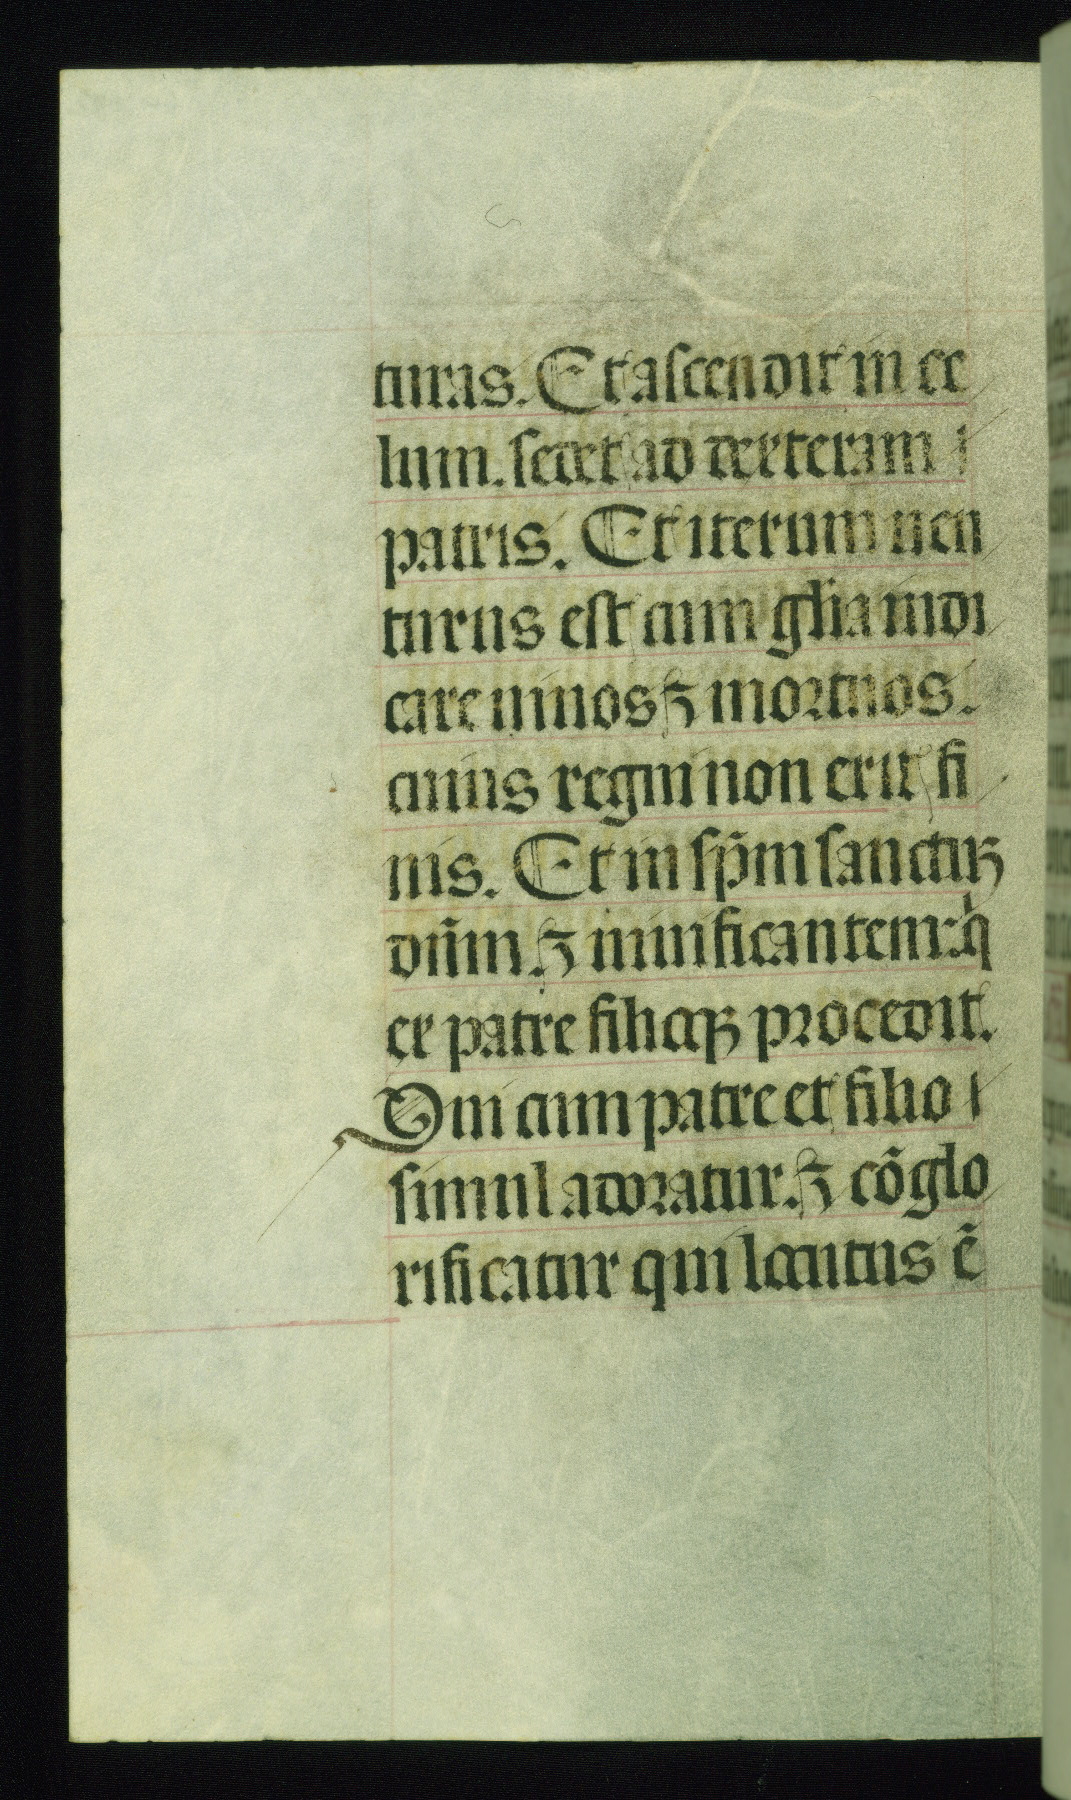 turas. Et ascendit in ce
lum. sedet ad dexteram
patris. Et iterum uen
turus est cum glia iudi
care uiuos ⁊ mortuos.
cuius regni non erit fi
nis. Et in sp̄m sanctuꝫ
dn̄m. ⁊ uiuificantem: q̇
ex patre filioqꝫ procedit.
Qui cum patre et filio
simul adoratur. ⁊ cōglo
rificatur qui locutus ē